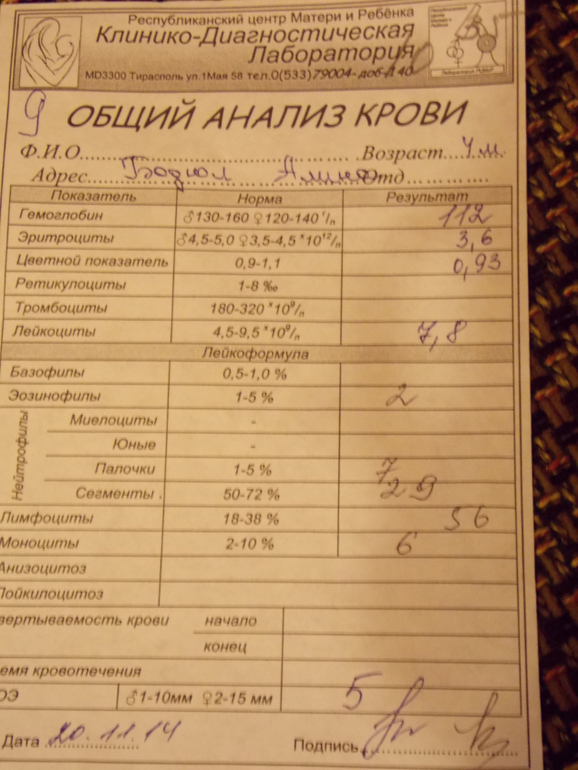 Республиканский центр Матери и Ребёнка
Клинико-Диагностическая
Лаборатория
MD3300 Тирасполь ул.1Мая 58 тел.0(533)79004-доб-Д 40
9
ОБЩИЙ АНАЛИЗ КРОВИ
Ф.И.О. Возраст 4 м.
Адрес Отд
Показатель Норма Результат
Гемоглобин ♂130-160 ♀120-140 г/л 112
Эритроциты ♂4,5-5,0 ♀3,5-4,5 x10¹²/л 3,6
Цветной показатель 0,9-1,1 0,93
Ретикулоциты 1-8 ‰
Тромбоциты 180-320 x10⁹/л
Лейкоциты 4,5-9,5 x10⁹/л 7,8
Лейкоформула
Базофилы 0,5-1,0 %
Эозинофилы 1-5 % 2
Нейтрофилы
Миелоциты -
Юные -
Палочки 1-5 % 7
Сегменты 50-72 % 29
Лимфоциты 18-38 % 56
Моноциты 2-10 % 6
Анизоцитоз
Пойкилоцитоз
вертываемость крови начало
конец
емя кровотечения
ОЭ ♂1-10мм ♀2-15 мм 5
Дата 20.11.14 Подпись